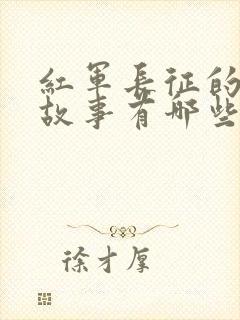 红軍長征的
故事有哪些
徐才厚